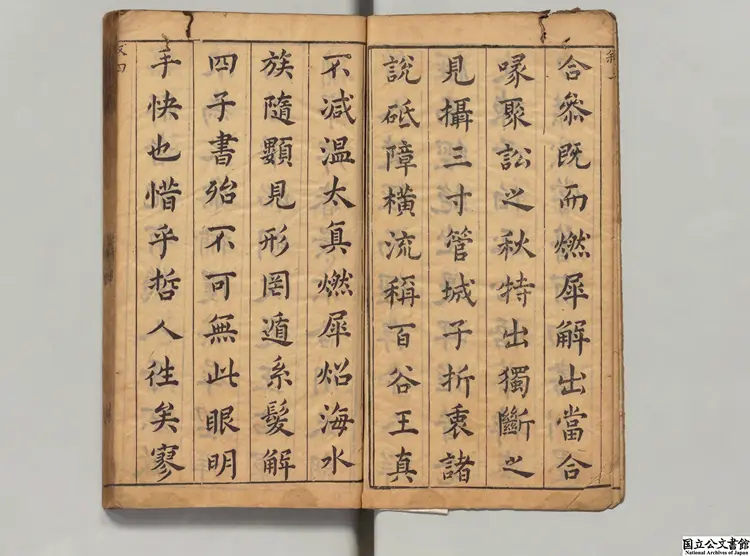 合參既而燃犀解出當合
喙聚訟之秋特出獨斷之
見攝三寸管城子折衷諸
說砥障橫流稱百谷王真
不減溫太真燃犀炤海水
族隨顆見形罔遁系髮解
四子書殆不可無此眼明
手快也惜乎哲人往矣寥
國立公文書館
National Archives of Japan